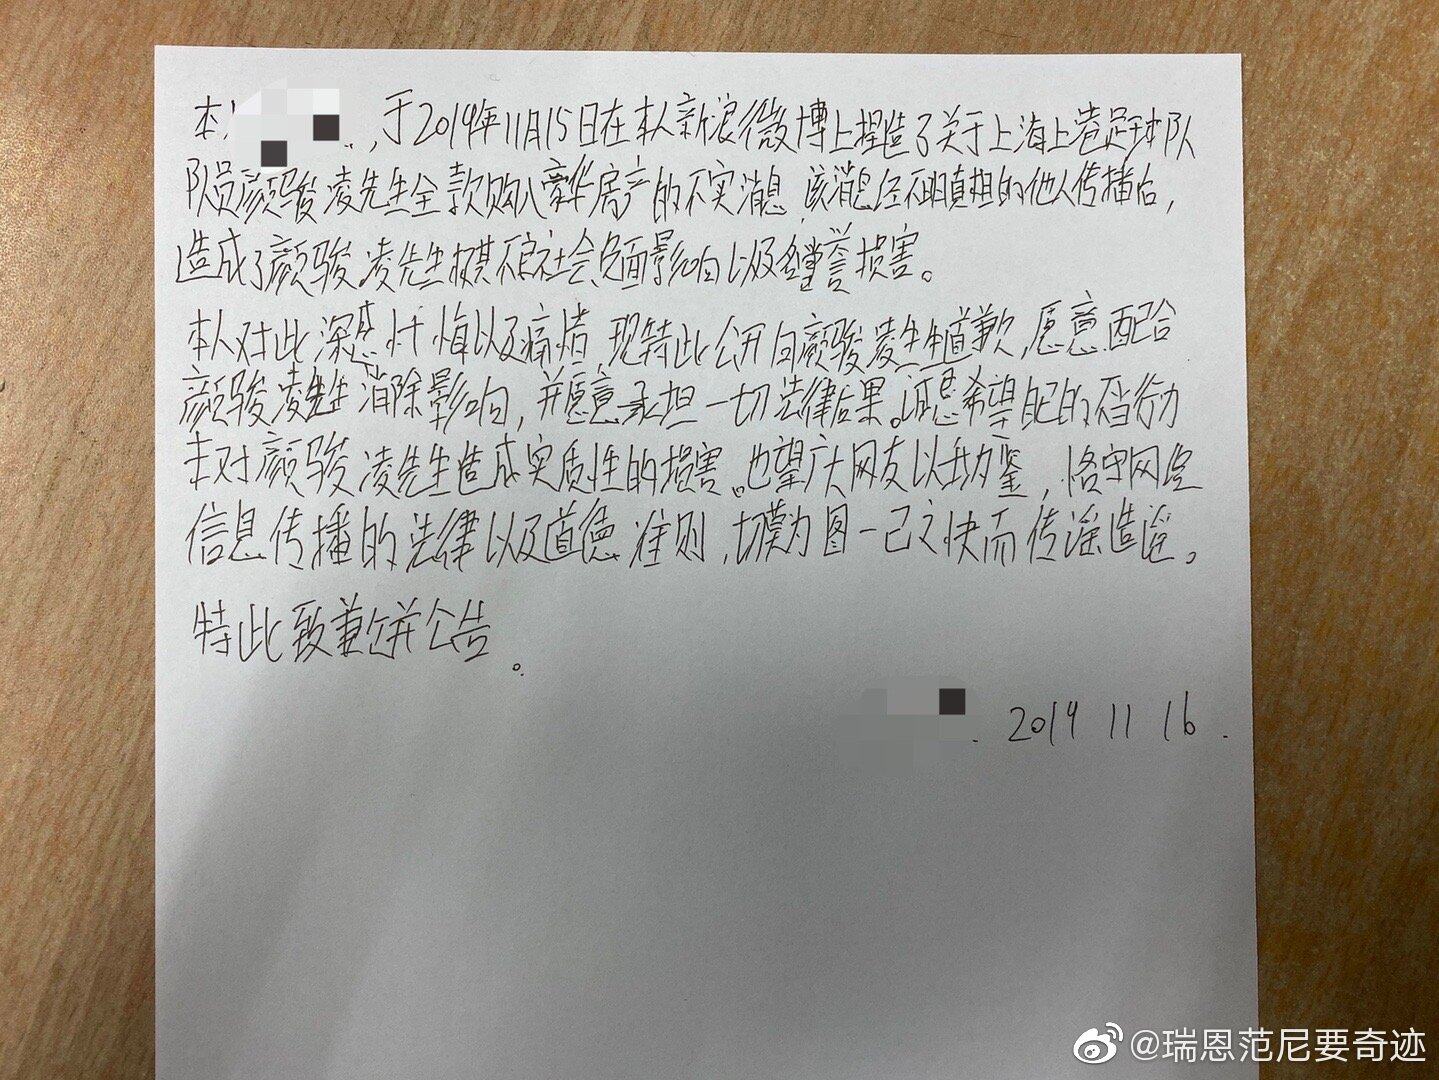 本人 ，于2019年11月15日在本人新浪微博上捏造了关于上海上港足球队
队员颜骏凌先生全款购入豪华房产的不实消息，该消息经不明真相的他人传播后，
造成了颜骏凌先生极其不良社会负面影响以及名誉损害。
本人对此深感忏悔以及痛惜，现特此公开向颜骏凌先生道歉，愿意配合
颜骏凌先生消除影响，并愿意承担一切法律后果。 希望自己的不当行为
未对颜骏凌先生造成实质性的损害。也望广大网友以我为鉴，恪守网络
信息传播的法律以及道德准则，切莫为图一己之快而传谣造谣。
特此致歉并公告。
2019 11 16.
@瑞恩范尼要奇迹